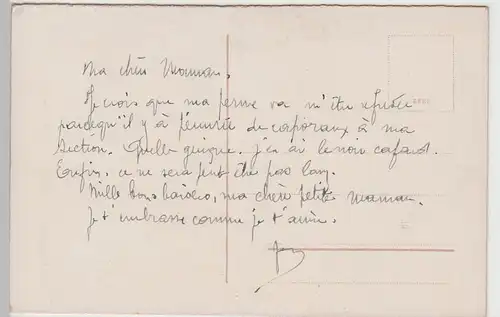 Ma chère Maman.
Je crois que ma perme va m'être refusée
parcequ'il y a pénurie de caporaux à ma
section. Quelle guigne. J'en ai le noir cafard.
Enfin, ce ne sera peut être pas long.
Mille bons baisers, ma chère petite maman.
Je t'embrasse comme je t'aime.